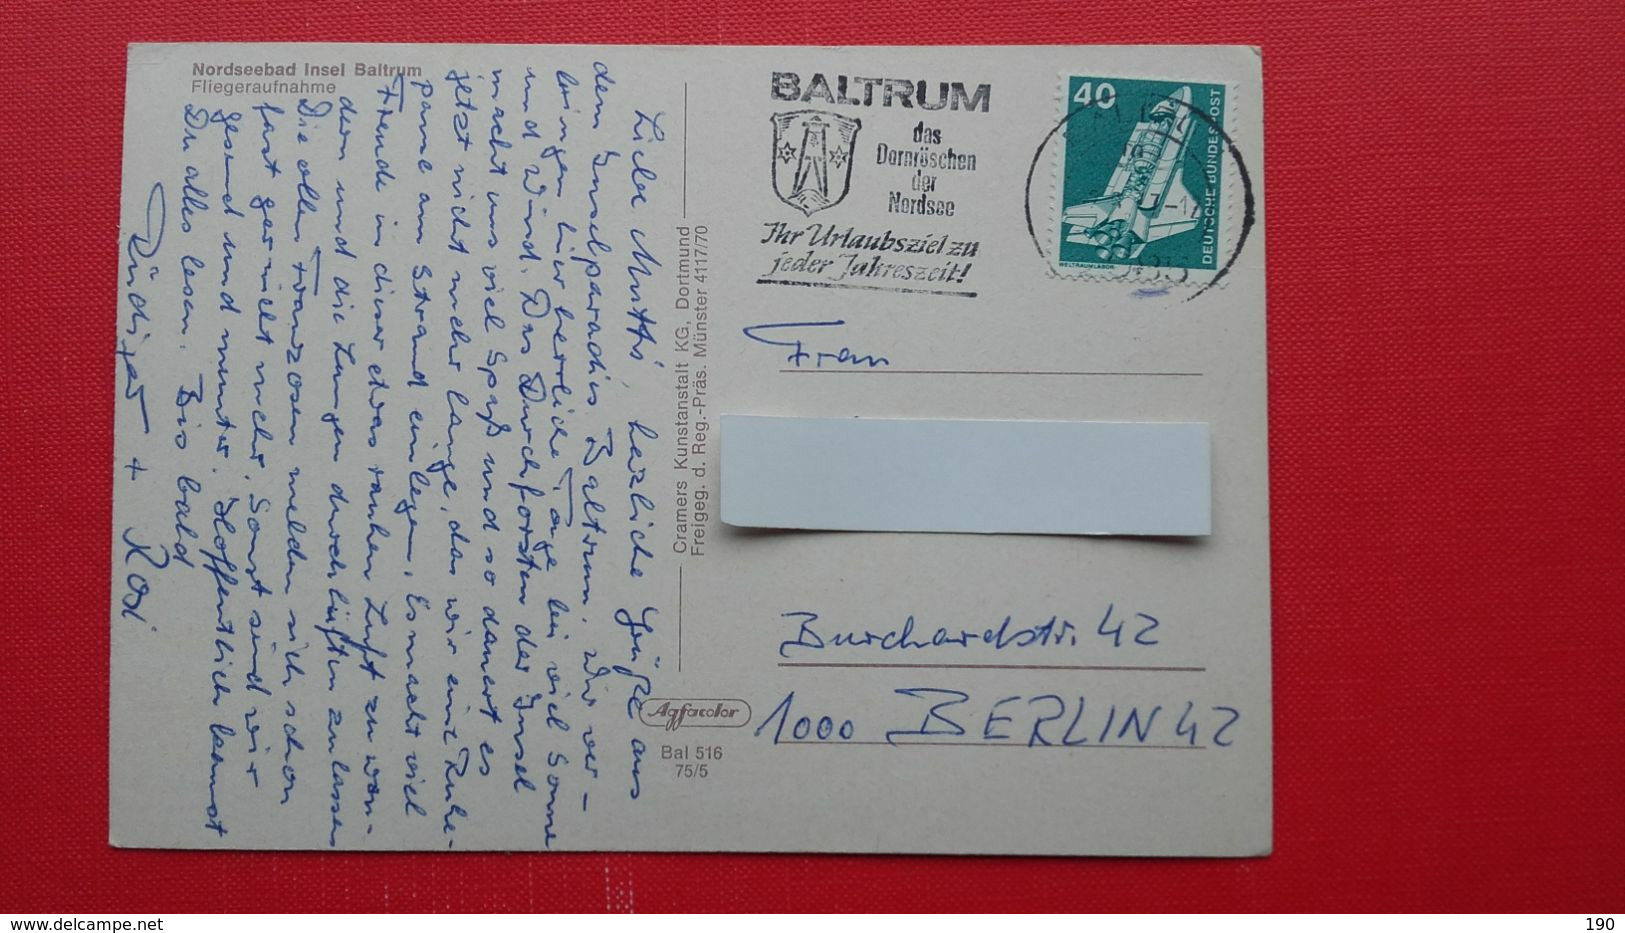 Nordseebad Insel Baltrum
Fliegeraufnahme
Liebe Mutti, herzliche Grüße aus
dem Inselparadies Baltrum. Wir ver-
bringen hier herrliche Tage bei viel Sonne
und Wind. Das Durchforsten der Insel
macht uns viel Spaß und so dauert es
jetzt nicht mehr lange, das wir eine Ruhe-
pause am Strand einlegen. Es macht viel
Freude in dieser etwas rauhen Luft zu wan-
dern und die Lungen durchlüften zu lassen
Die ollen Franzosen melden sich schon
fast gar nicht mehr. Sonst sind wir
gesund und munter. Hoffentlich kannst
Du alles lesen. Bis bald
Rüdiger + Rosi
Cramers Kunstanstalt KG, Dortmund
Freigeg. d. Reg.-Präs. Münster 4117/70
Agfacolor
Bal 516
75/5
BALTRUM
das
Dornröschen
der
Nordsee
Ihr Urlaubsziel zu
jeder Jahreszeit!
40
DEUTSCHE BUNDESPOST
WELTRAUMLABOR
Frau
Burchardstr. 42
1000 BERLIN 42
delcampe.net
www
190